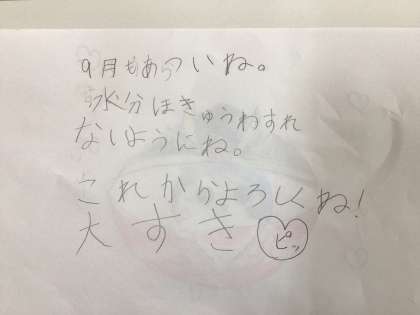 9月もあついね。
水分ほきゅうわすれ
ないようにね。
これからよろしくね!
大すき ピッ